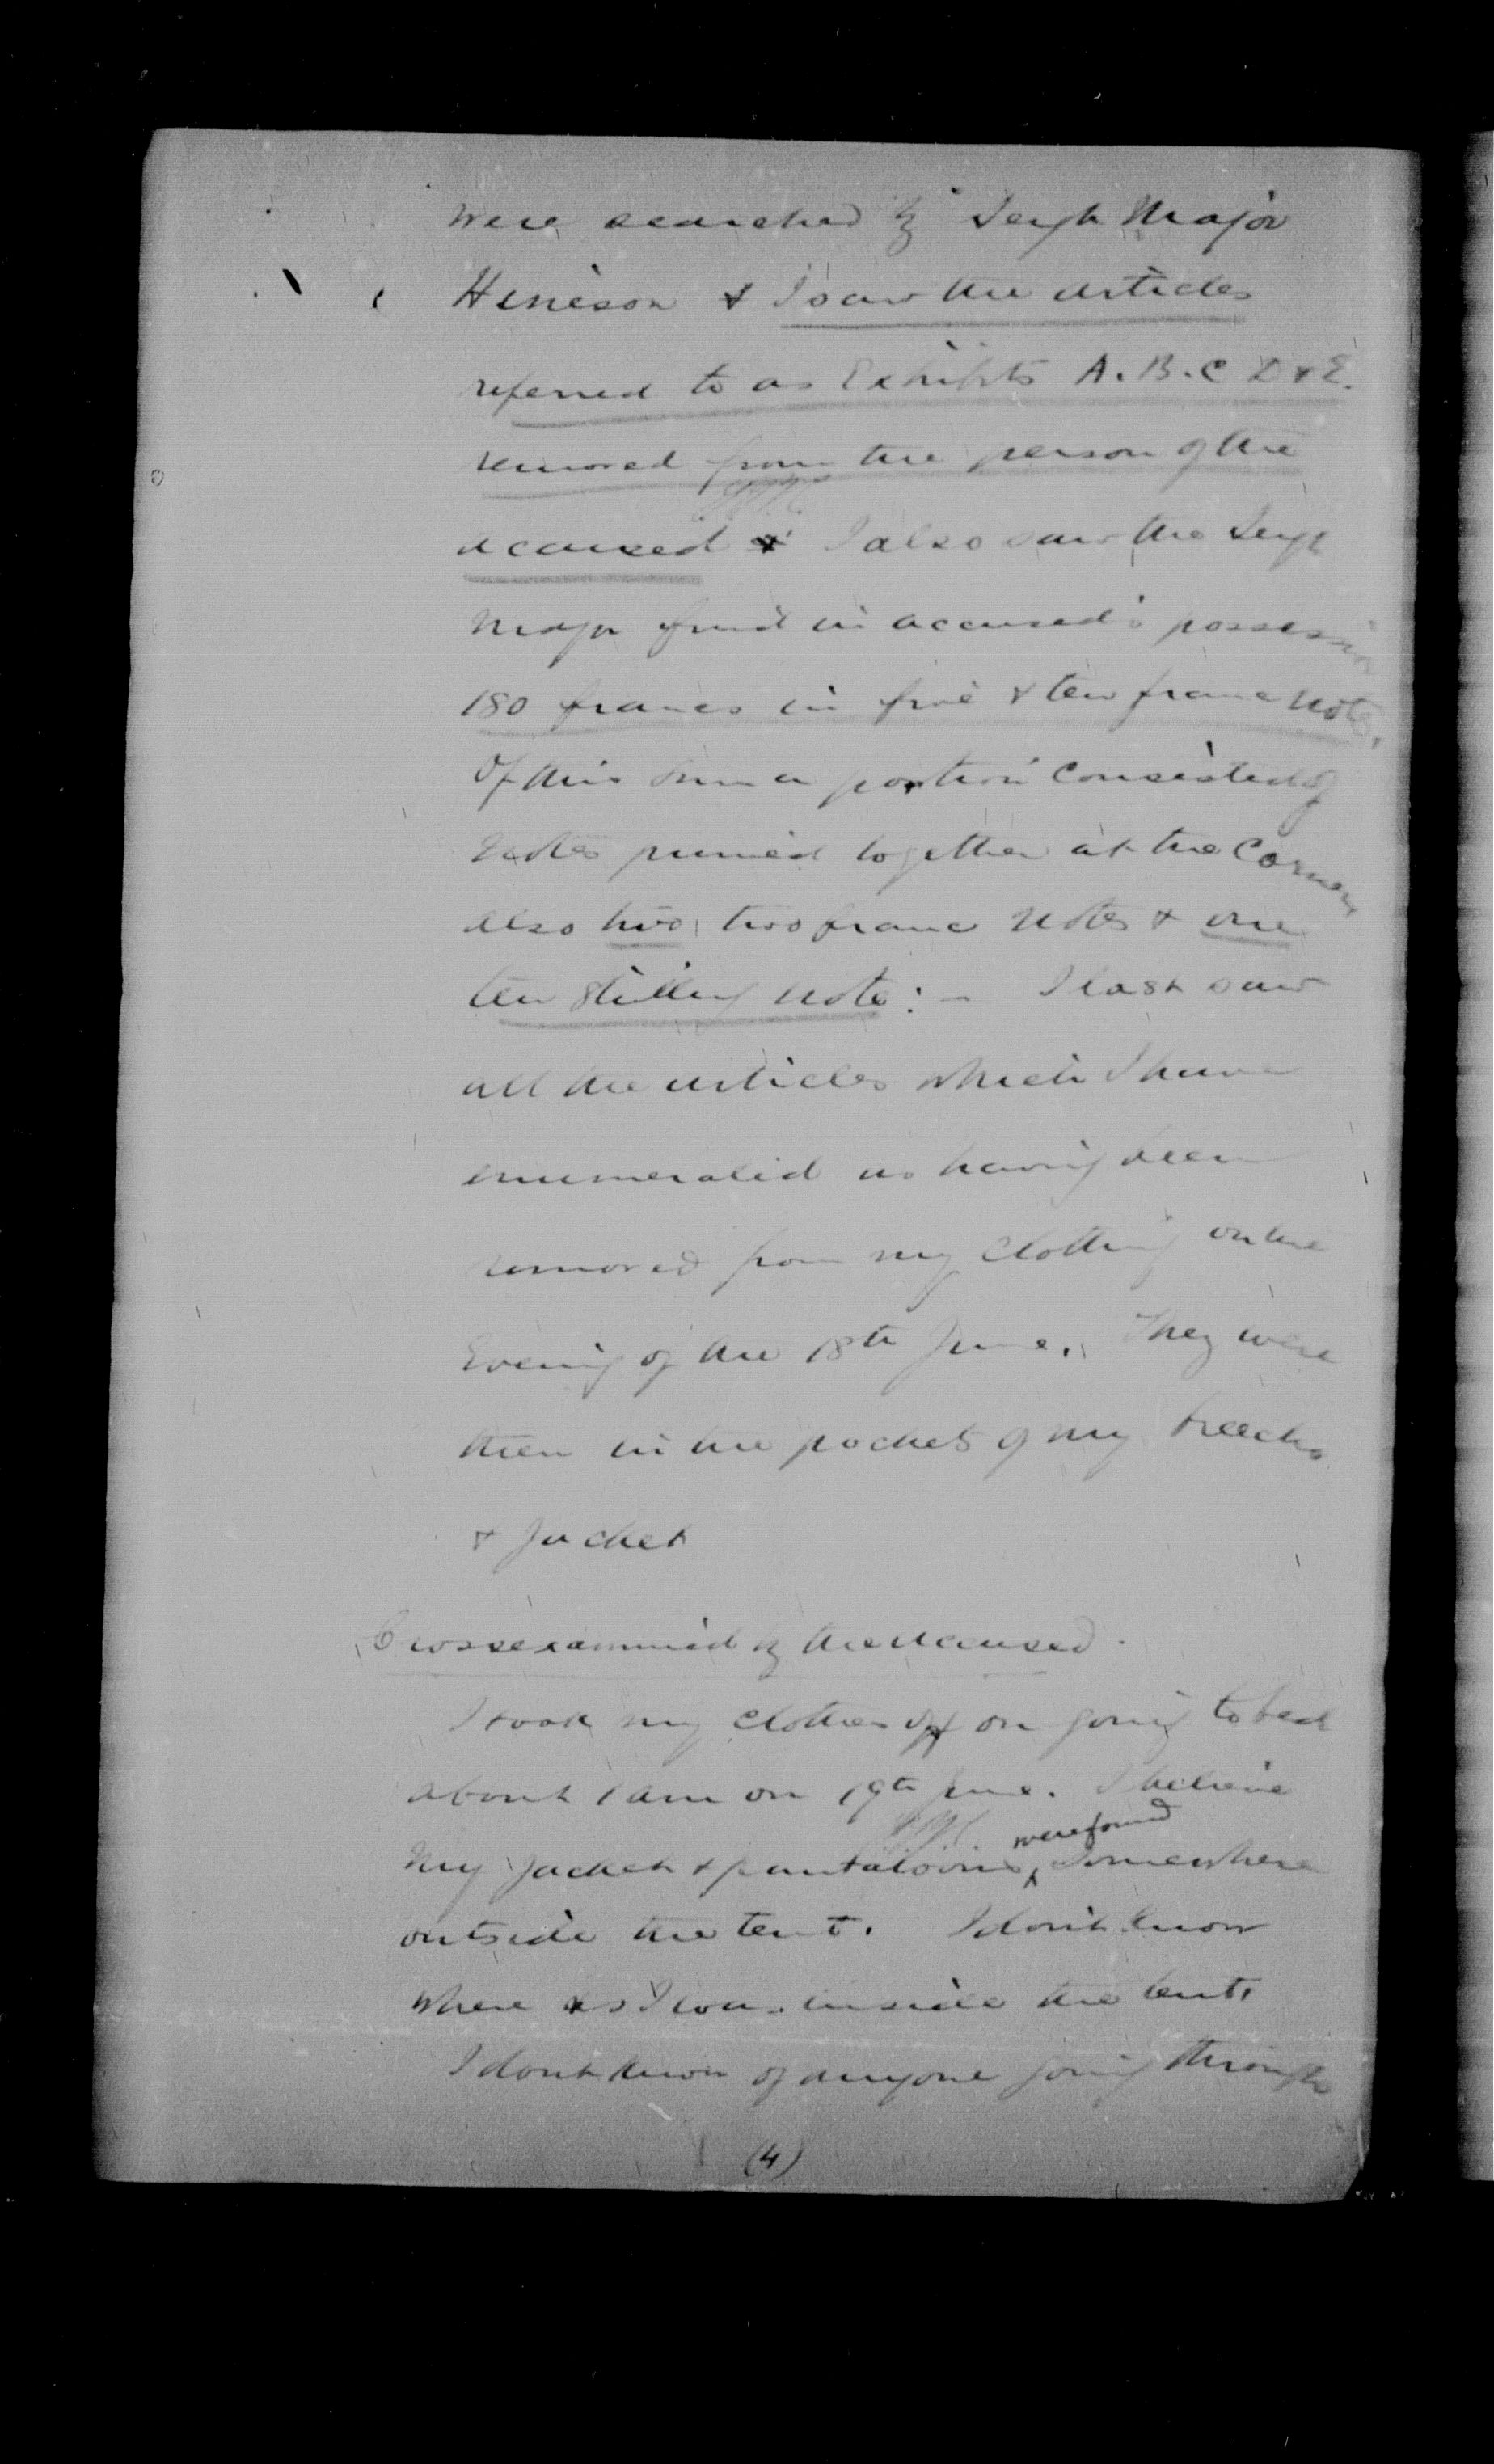 were searched by Sergt Major
& I saw the articles
referred to as Exhibits A. B. C D & E.
removed from the person of the
accused & I also saw the Sergt
Major find in accused's possession
180 francs in five & ten franc notes.
Of this sum a portion consisted of
notes pinned together at the corner
also two two franc notes & one
ten shilling note: – I last saw
all the articles which I have
enumerated as having been
removed from my clothing on the
evening of the 18th June. They were
then in the pockets of my breeches
& jacket
Cross examined by the accused.
I took my clothes off on going to bed
about 1 am on 19th June. I believe
were found
my jacket & pantaloons somewhere
outside the tent. I don't know
where as I was inside the tent.
I dont know of anyone going through
(4)